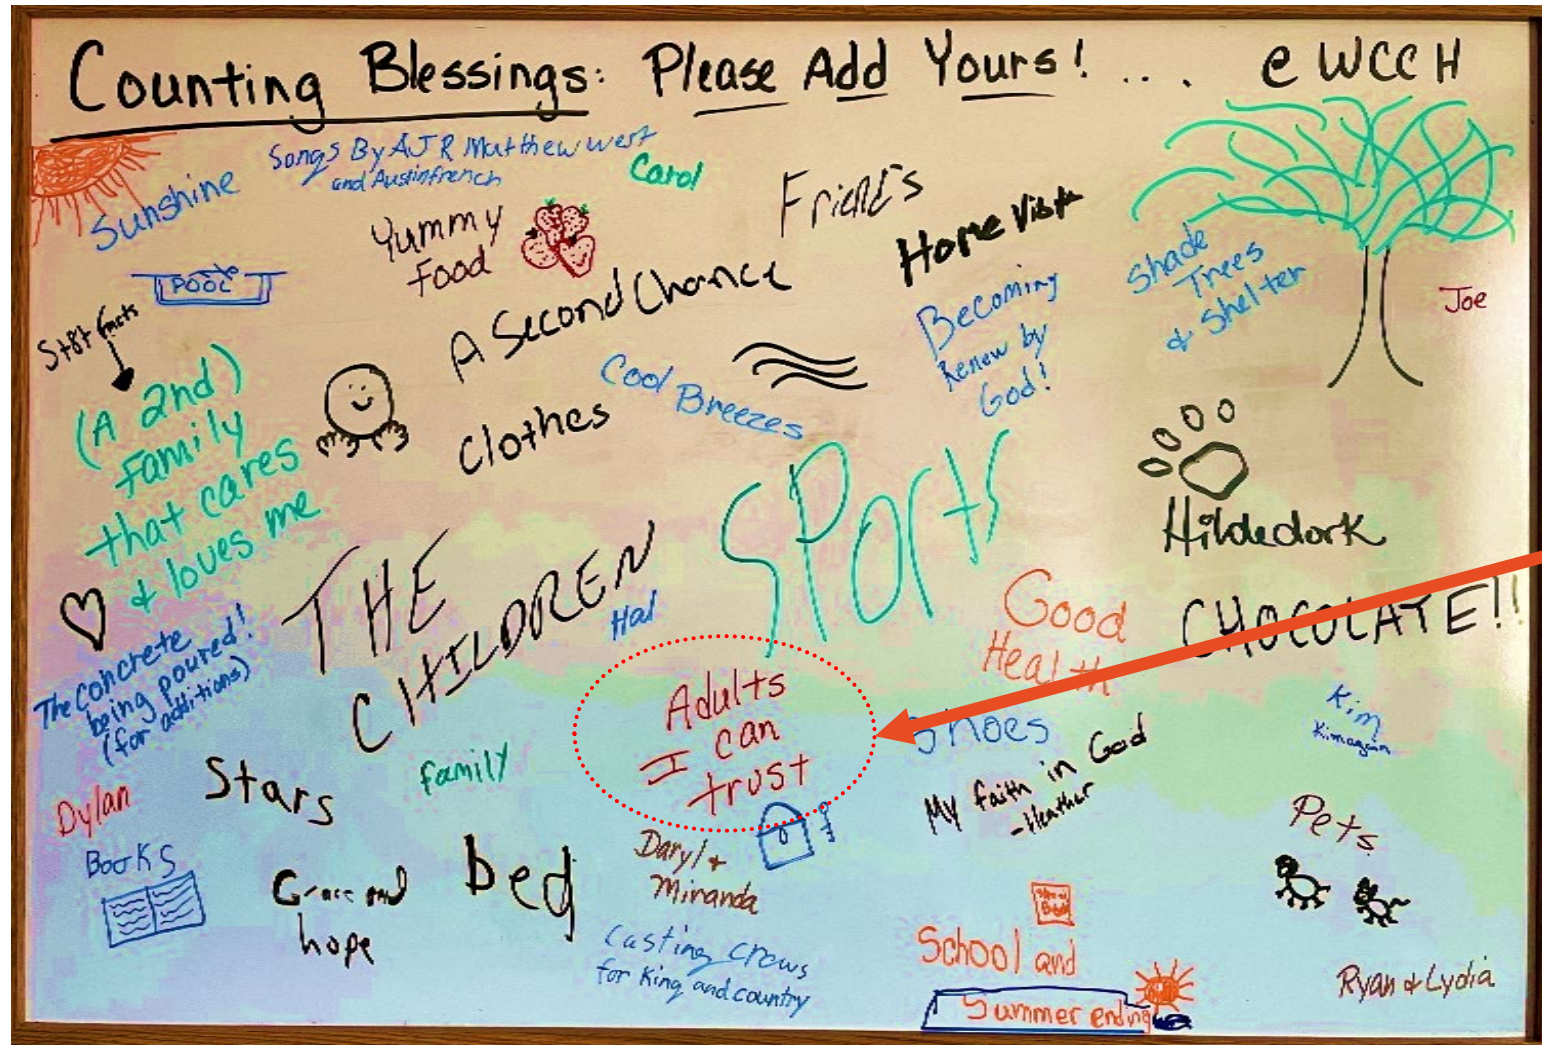 Counting Blessings: Please Add Yours! .... @ WCCH
Songs By AJR Matthew West
and Austinfrench
Carol
Sunshine
Yummy
Food
Friends
Home Visit
Shade
Trees
& Shelter
Joe
POOL
A Second Chance
Becoming
Renew by
God!
St8t facts
(A 2nd)
Family
that cares
& loves me
Cool
Breezes
Clothes
SPorts
Hildedork
THE
CHILDREN
Hal
Good
Health
CHOCOLATE!!
The concrete
being poured!
(for additions)
Adults
I can
trust
Shoes
Kim
My faith in God
-Heather
Stars
family
Dylan
Books
Grace and
hope
bed
Daryl &
Miranda
Pets
Casting Crows
for King and country
School and
Summer ending
Ryan & Lydia